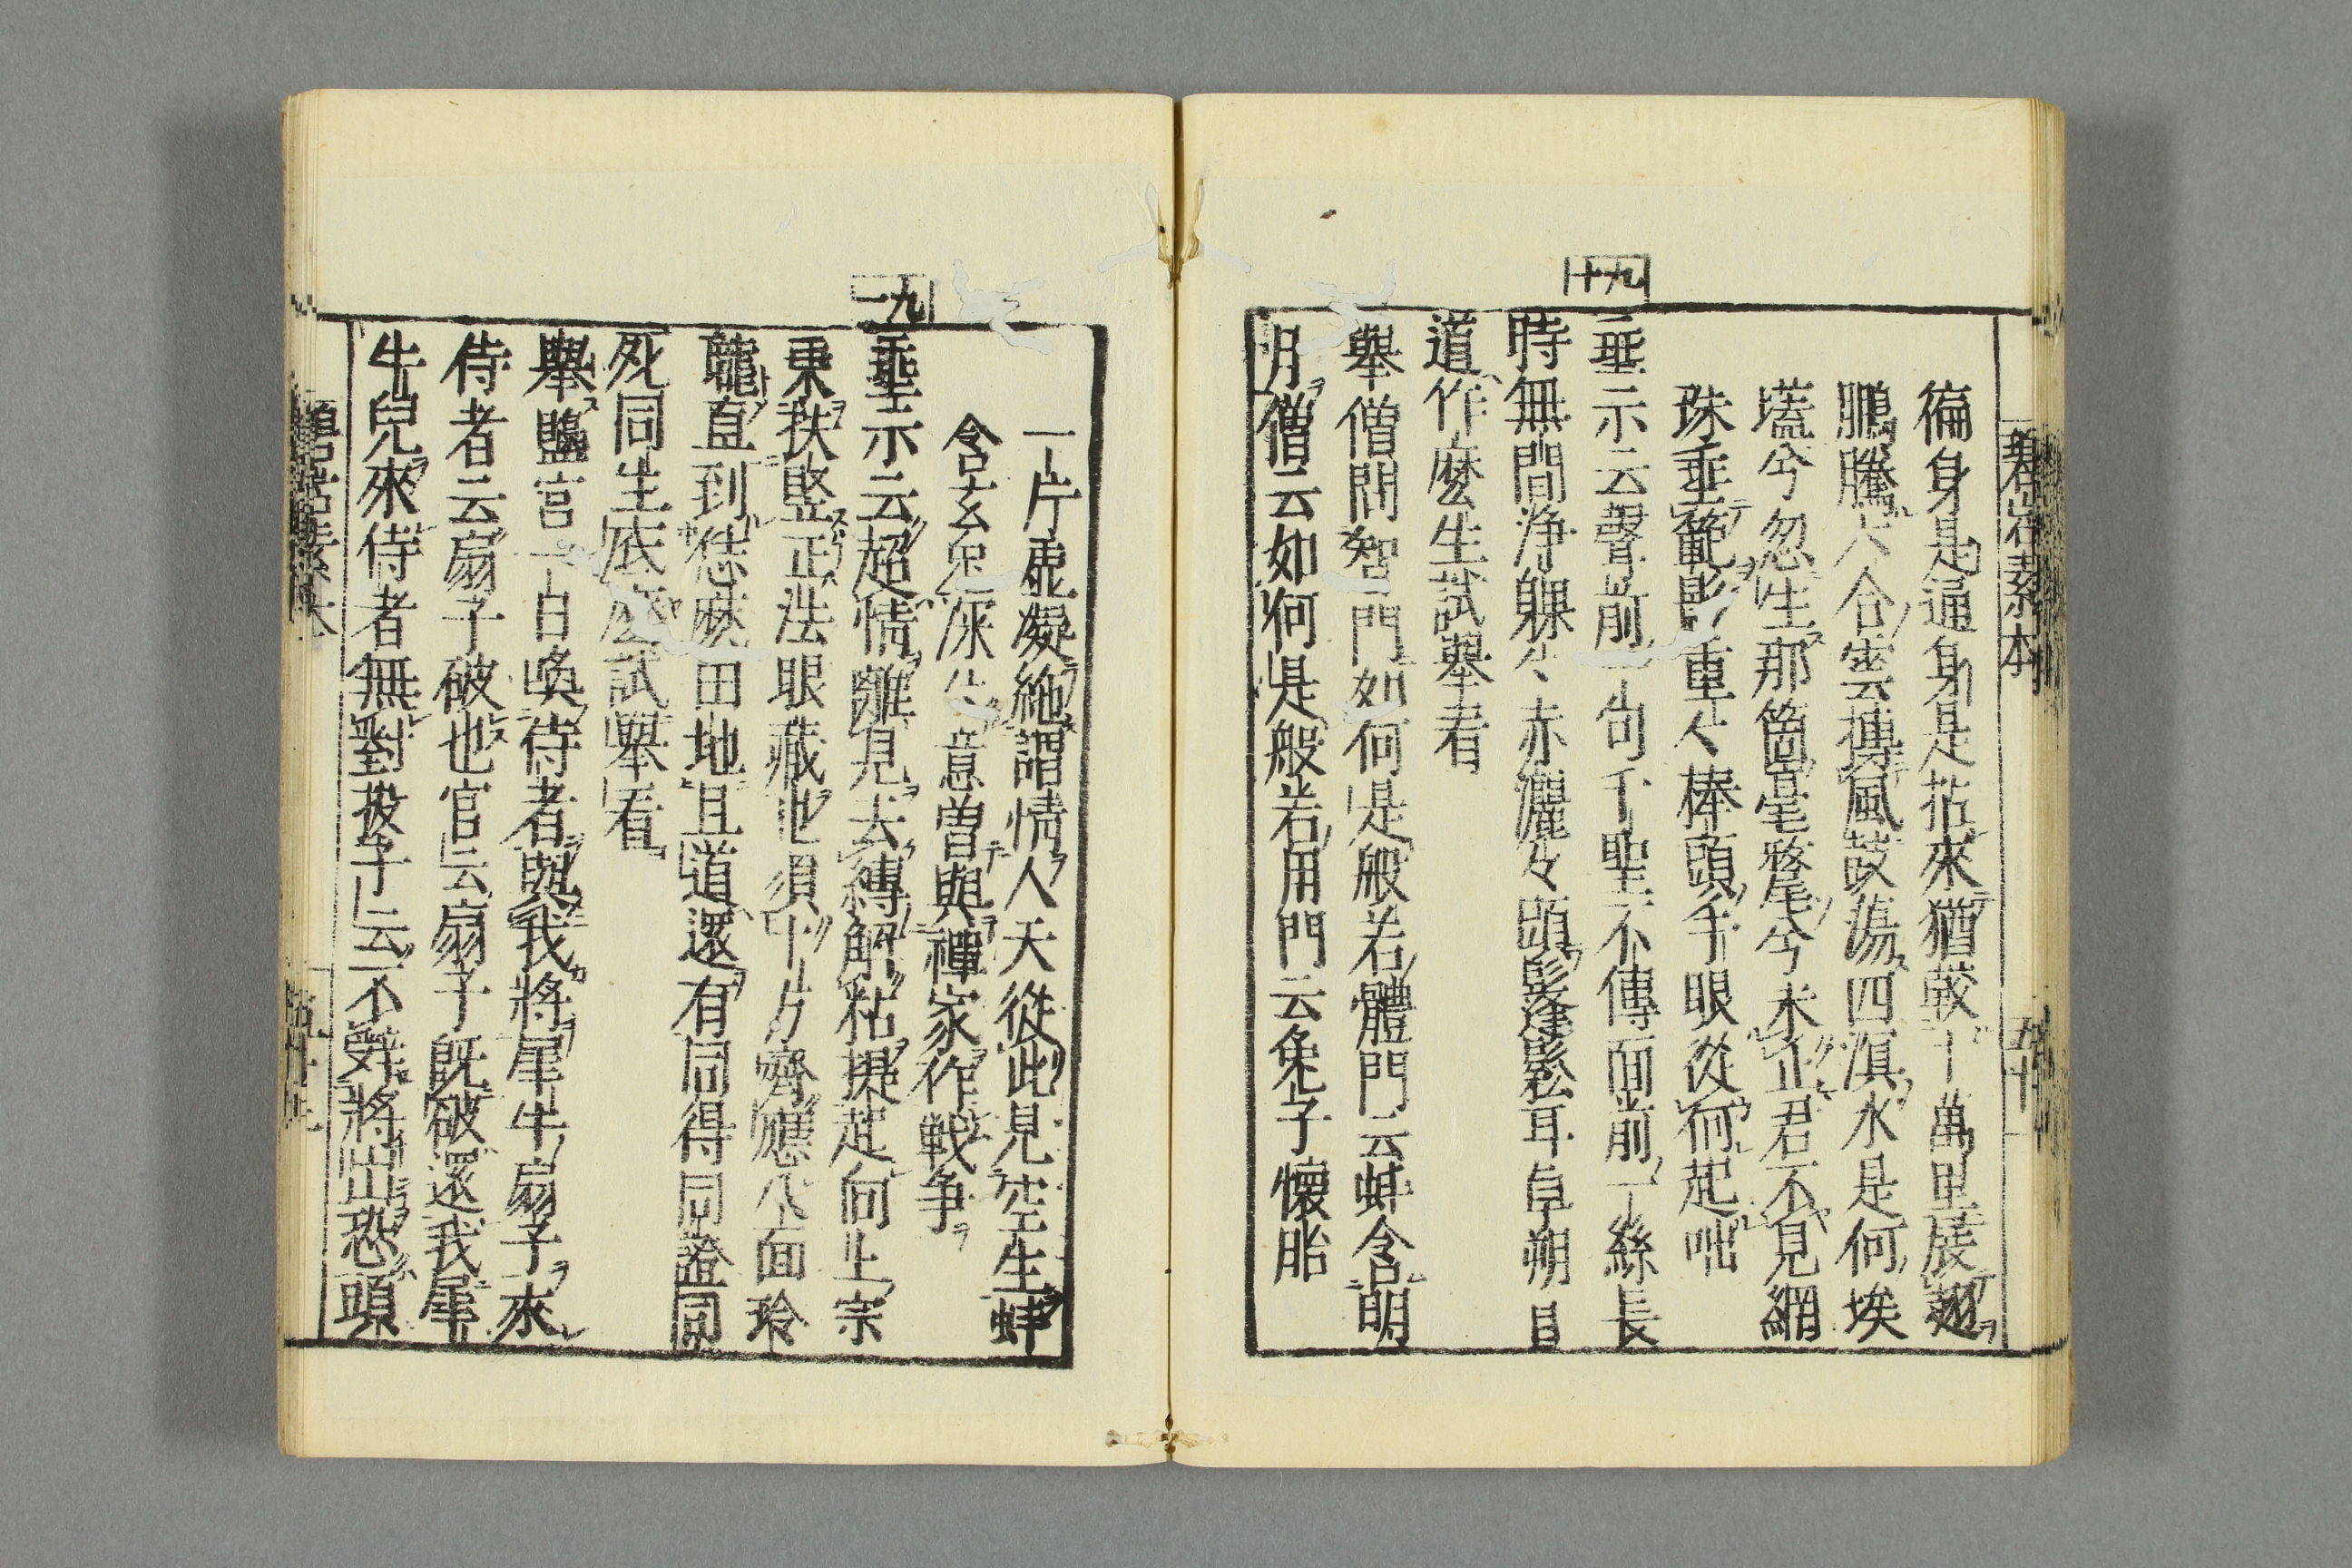 碧岩素本
徧身是通身是拈來猶較十萬里展翅
鵬騰六合雲摶風鼓蕩四溟水是何埃
壒兮忽生那箇毫釐兮未止君不見網
珠垂範影重々棒頭手眼從何起咄
九十
垂示云聲前一句千聖不傳面前一絲長
時無間浄躶々赤灑々頭髼鬆耳卓朔且
道作麽生試舉看
舉僧問智門如何是般若體門云蚌含明
月僧云如何是般若用門云兔子懷胎
一片虚凝絶謂情人天從此見空生蚌
含玄兔深々意曽與禪家作戦争
九一
垂示云超情離見去縛解粘提起向上宗
乗扶竪正法眼藏也須十方齊應八面玲
瓏直到恁麽田地且道還有同得同證同
死同生底麽試舉看
舉鹽官一日喚侍者與我將犀牛扇子來
侍者云扇子破也官云扇子既破還我犀
牛兒來侍者無對投子云不辭將出恐頭